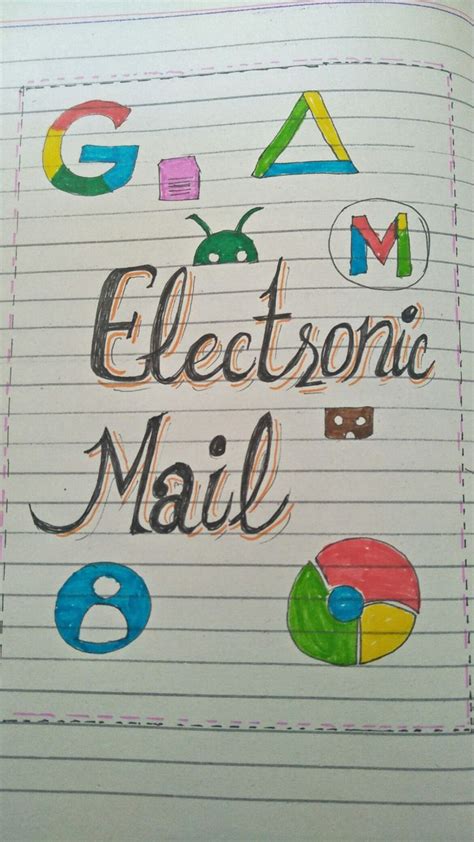 Electronic
Mail